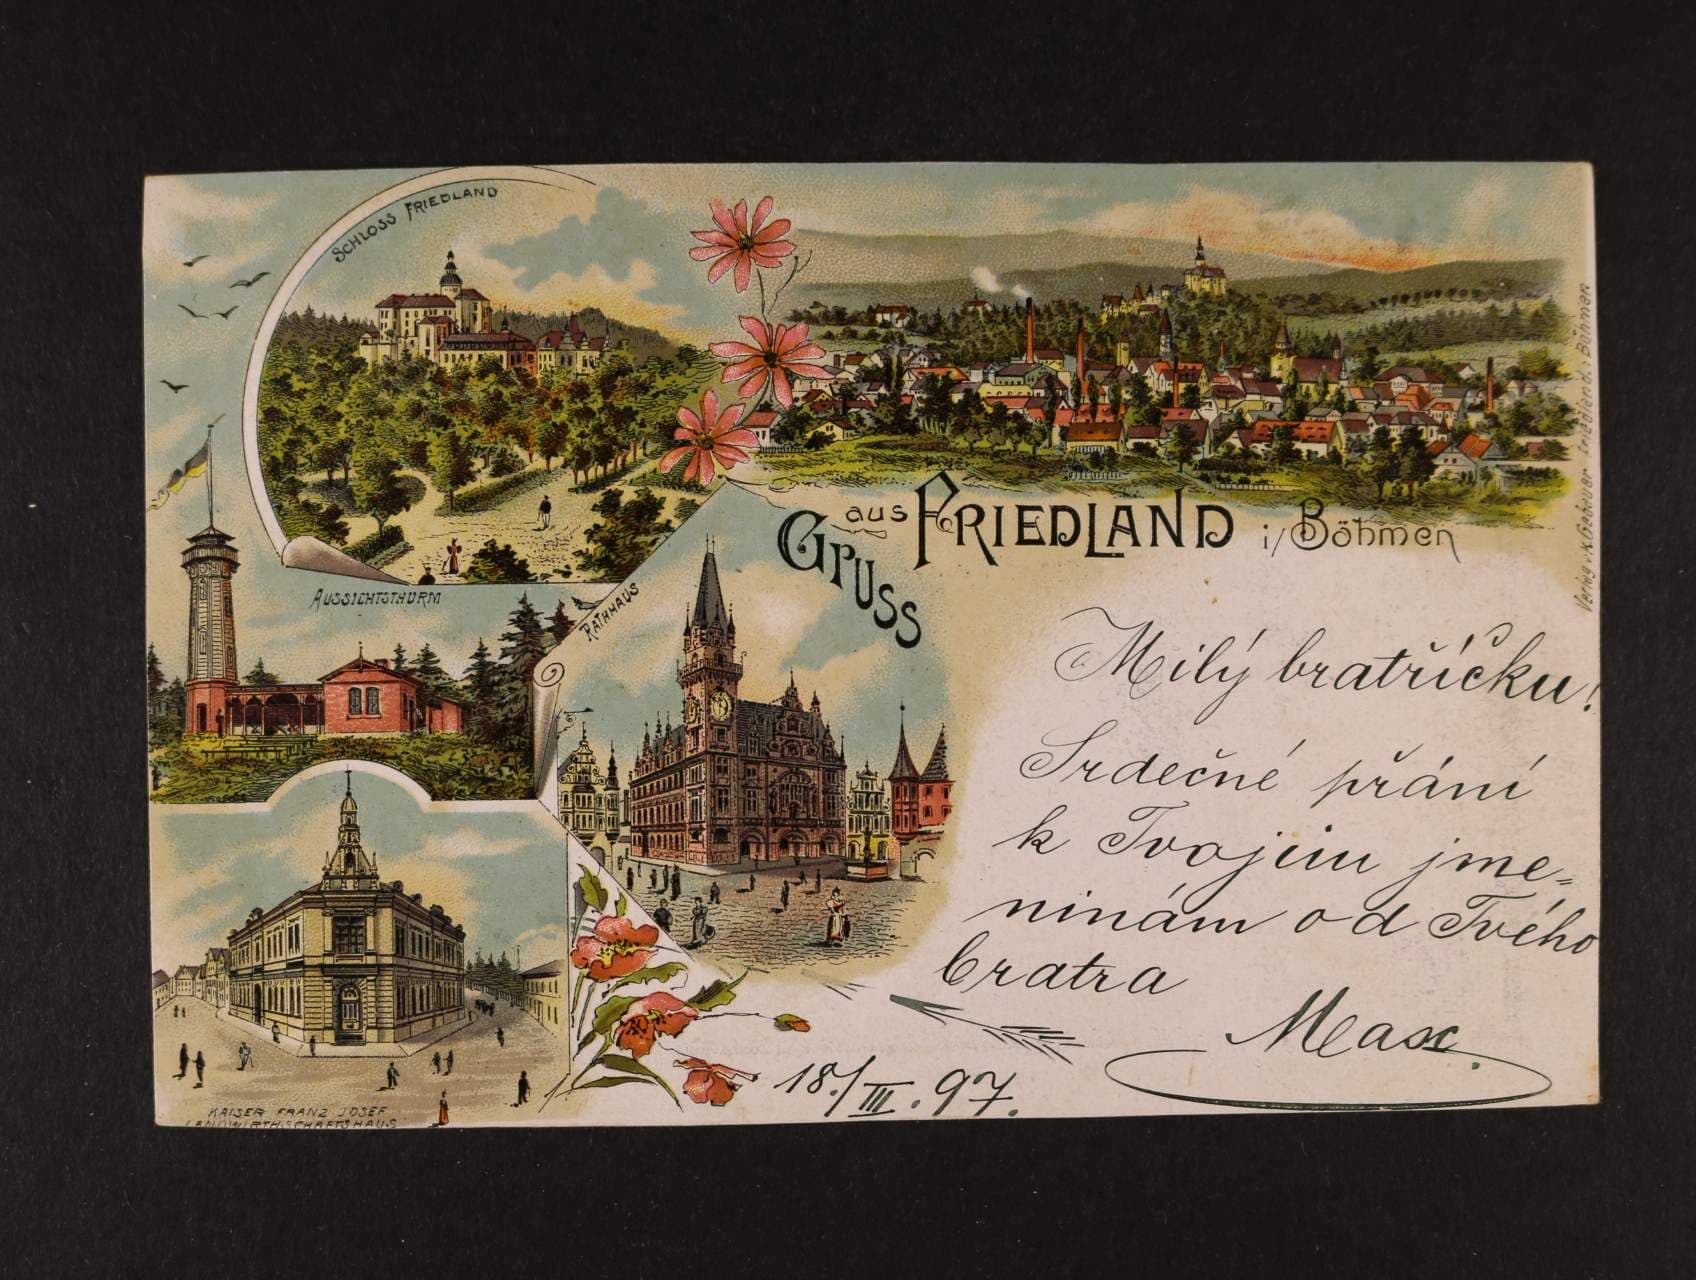 SCHLOSS FRIEDLAND
AUSSICHTSTHURM
RATHHAUS
GRUSS aus FRIEDLAND i/Böhmen
Verlag v. K. Gebauer Friedland i. Böhmen
KAISER FRANZ JOSEF
LANDWIRTHSCHAFTSHAUS
Milý bratříčku!
Srdečné přání
k Tvojim jme=
ninám od Tvého
bratra
Max.
18./III. 97.